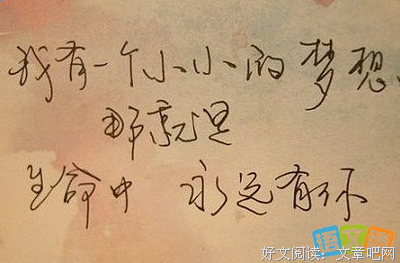 我有一个小小的梦想.
那就是
生命中 永远有你
语文迷
好文阅读：文章吧网